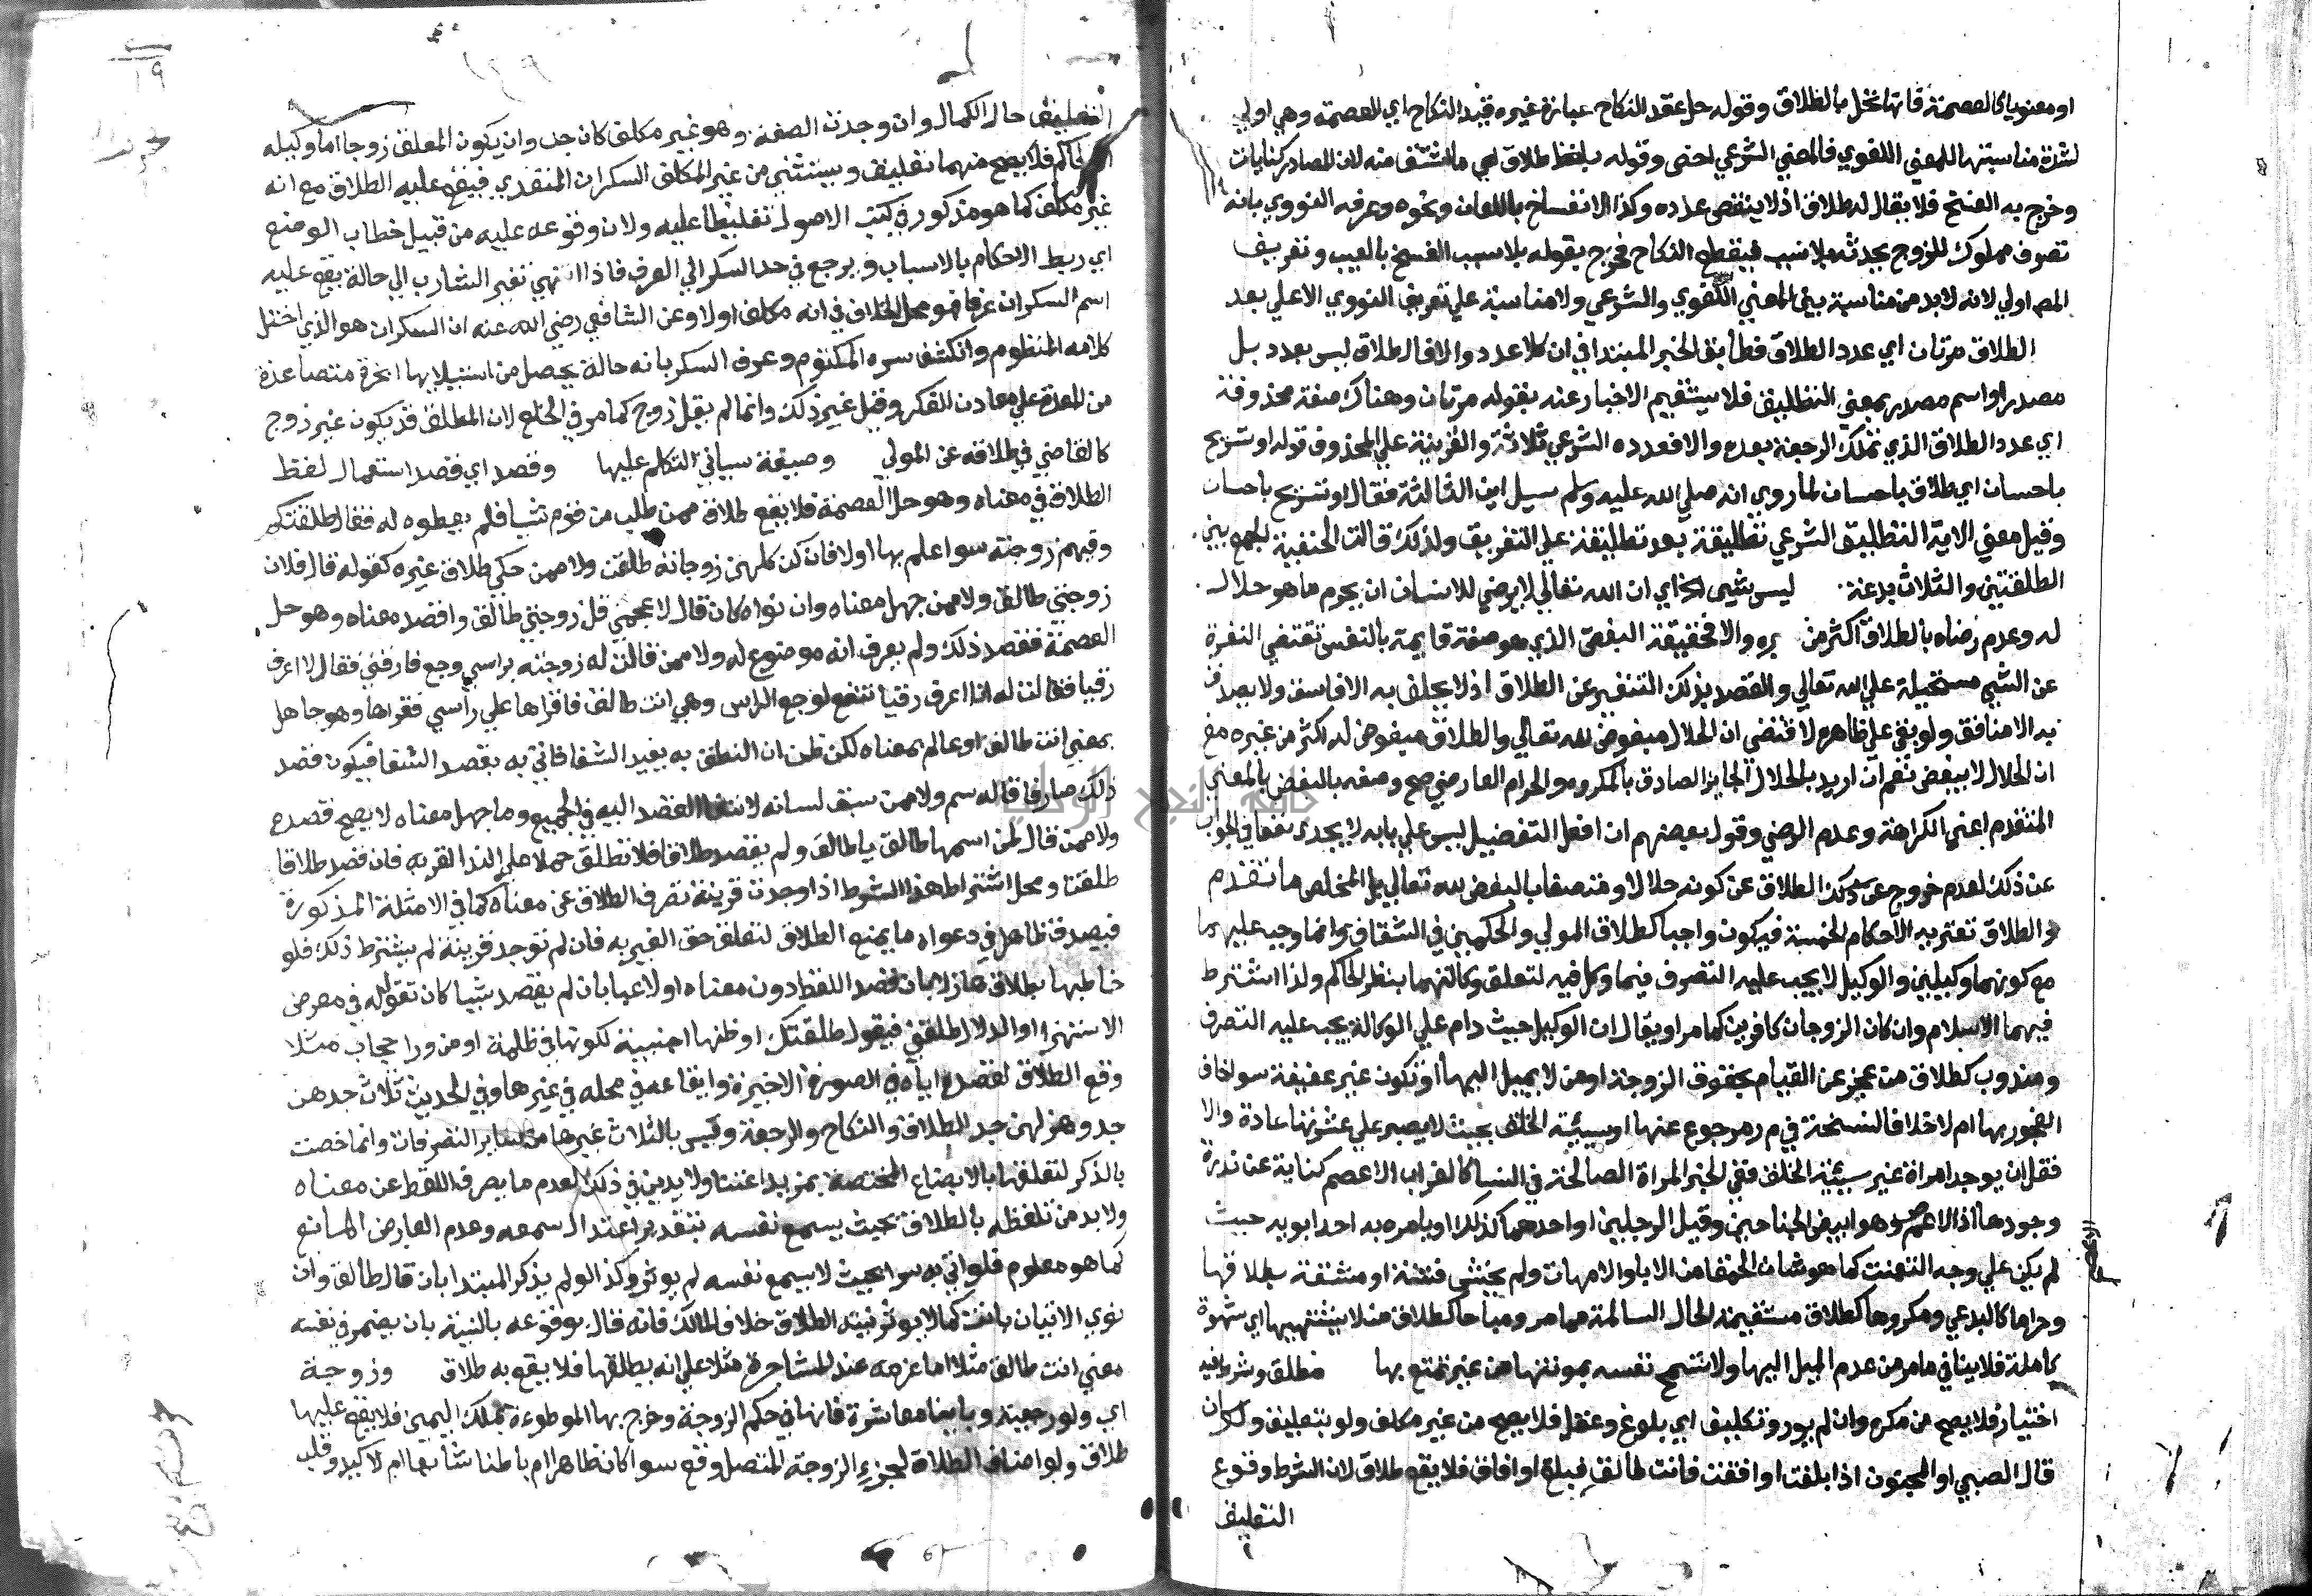 او معنويا كالعصمة فانها تخل بالطلاق وقوله حل عقد النكاح عبارة غيره قيد النكاح اي العصمة وهي اولي
لشدة مناسبتها للمعني اللغوي فالمعني الشرعي اخص وقوله بلفظ طلاق اي ما اشتق منه لان المصادر كنايات
وخرج به الفسخ فلا يقال له طلاق اذ لا ينقص عدده وكذا الانفساخ باللعان ونحوه وعرفه النووي بانه
تصرف مملوك للزوج يحدثه بلا سبب فيقطع النكاح فخرج بقوله بلا سبب الفسخ بالعيب وتعريف
المص اولي لانه لابد من مناسبة بين المعني اللغوي والشرعي ولا مناسبة علي تعريف النووي الا علي بعد
الطلاق مرتان اي عدد الطلاق فطابق الخبر المبتدا في ان كلا عدد والا فالطلاق ليس بعدد بل
مصدر او اسم مصدر بمعني التطليق فلا يستقيم الاخبار عنه بقوله مرتان وهناك صفة محذوفة
اي عدد الطلاق الذي تملك الرجعة بعده والا فعدده الشرعي ثلاثة والقرينة علي المحذوف قوله او تسريح
باحسان اي طلاق باحسان لما روي انه صلي الله عليه وسلم سيل اين الثالثة فقال او تسريح باحسان
وقيل معني الاية التطليق الشرعي تطليقة بعد تطليقة علي التفريق ولذلك قالت الحنفية الجمع بين
الطلقتين والثلاث بدعة ليس شيى الخ اي ان الله تعالي لا يرضي للانسان ان يحرم ما هو حلال
له وعدم رضاه بالطلاق اكثر من غيره والا فحقيقة البغض الذي هو صفة قايمة بالنفس تقتضي النفرة
عن الشي مستحيلة علي الله تعالي والقصد بذلك التنفير عن الطلاق اذ لا يحلف به الا فاسق ولا يصدق
به الا منافق ولو بقي علي ظاهره لاقتضي ان الحلال مبغوض لله تعالي والطلاق مبغوض له اكثر من غيره مع
ان الحلال لا يبغض نعم ان اريد بالحلال الجايز الصادق بالمكروه والحرام العارضي صح وصفه بالبغض بالمعني
المتقدم اعني الكراهة وعدم الرضي وقول بعضهم ان افعل التفضيل ليس علي بابه لا يجدي نفعا في الجواب
عن ذلك لعدم خروج الطلاق عن كونه حلالا ومتصفا بالبغض لله تعالي بل المخلص ما تقدم
والطلاق تعتريه الاحكام الخمسة فيكون واجبا كطلاق المولي والحكمين في الشقاق وانما وجب عليهما
مع كونهما وكيلين والوكيل لا يجب عليه التصرف فيما وكل فيه لتعلق وكالتهما بنظر الحاكم ولذا اشترط
فيهما الاسلام وان كان الزوجان كافرين كما مر او يقال ان الوكيل حيث دام علي الوكالة يجب عليه التصرف
ومندوب كطلاق من عجز عن القيام بحقوق الزوجة او من لا يميل اليها او تكون غير عفيفة سوا خاف
الفجور بها ام لا خلافا لنسخة في م ر مرجوع عنها او سيئة الخلق بحيث لا يصبر علي عشرتها عادة والا
فقل ان يوجد امراة غير سيئة الخلق ففي الخبر المراة الصالحة في النسا كالغراب الاعصم كناية عن ندرة
وجودها اذ الاعصم وهو ابيض الجناحين وقيل الرجلين او احدهما كذلك او يامره به احد ابويه حيث
لم يكن علي وجه التعنت كما هو شان الحمقا من الابا والامهات ولم يخش فتنة او مشقة بطلاقها
وحراما كالبدعي ومكروها كطلاق مستقيمة الحال السالمة مما مر ومباحا كطلاق من لا يشتهيها اي شهوة
كاملة فلا ينافي ما مر من عدم الميل اليها ولا تسمح نفسه بمونتها من غير تمتع بها مطلق وشرط فيه
اختيار فلا يصح من مكره وان لم يور وتكليف اي بلوغ وعقل فلا يصح من غير مكلف ولو بتعليق ولو كان
قال الصبي او المجنون اذا بلغت او افقت فانت طالق فبلغ او افاق فلا يقع طلاق لان الشرط وقوع
التعليق
التعليق حال الكمال وان وجدت الصفة وهو غير مكلف كان جن وان يكون المعلق زوجا اما وكيله
او الحاكم فلا يصح منهما تعليق ويستثني من غير المكلف السكران المتعدي فيقع عليه الطلاق مع انه
غير مكلف كما هو مذكور في كتب الاصول تغليظا عليه ولان وقوعه عليه من قبيل خطاب الوضع
اي ربط الاحكام بالاسباب ويرجع في حد السكر الي العرف فاذا انتهي تغير الشارب الي حالة يقع عليه
اسم السكران عرفا فهو محل الخلاف في انه مكلف اولا وعن الشافعي رضي الله عنه ان السكران هو الذي اختل
كلامه المنظوم وانكشف سره المكتوم وعرف السكر بانه حالة تحصل من استيلا ابخرة متصاعدة
من المعدة علي معادن الفكر وقيل غير ذلك وانما لم يقل زوج كما مر في الخلع لان المطلق قد يكون غير زوج
كالقاضي في طلاقه عن المولي وصيغة سياتي التكلم عليها وقصد اي قصد استعمال لفظ
الطلاق في معناه وهو حل العصمة فلا يقع طلاق ممن طلب من قوم شيا فلم يعطوه له فقال طلقتكم
وفيهم زوجته سوا علم بها اولا فان كن كلهن زوجاته طلقن ولا ممن حكي طلاق غيره كقوله قال فلان
زوجتي طالق ولا ممن جهل معناه وان نواه كان قال لاعجمي قل زوجتي طالق واقصد معناه وهو حل
العصمة فقصد ذلك ولم يعرف انه موضوع له ولا ممن قالت له زوجته براسي وجع فارقني فقال لا اعرف
رقيا فقالت له انا اعرف رقيا تنفع لوجع الراس وهي انت طالق فاقراها علي راسي فقراها وهو جاهل
بمعني انت طالق او عالم بمعناه لكن ظن ان النطق به يفيد الشفا فاتي به بقصد الشفا فيكون قصد
ذلك صارفا قاله سم ولا ممن سبق لسانه لانتفا القصد اليه في الجميع وما جهل معناه لا يصح قصده
ولا ممن قال لمن اسمها طالق يا طالق ولم يقصد طلاقا فلا تطلق حملا علي الندا القربه فان قصد طلاقا
طلقت ومحل اشتراط هذا الشرط اذا وجدت قرينة تصرف الطلاق عن معناه كما في الامثلة المذكورة
فيصدق ظاهرا في دعواه ما يمنع الطلاق لتعلق حق الغير به فان لم توجد قرينة لم يشترط ذلك فلو
خاطبها بطلاق هازلا بان قصد اللفظ دون معناه او لاعبا بان لم يقصد شيا كان تقول له في معرض
الاستهزا او الدلال طلقني فيقول طلقتك او ظنها اجنبية لكونها في ظلمة او من ورا حجاب مثلا
وقع الطلاق لقصده اياه في الصورة الاخيرة وايقاعه في محله في غيرها وفي الحديث ثلاث جدهن
جد وهزلهن جد الطلاق والنكاح والرجعة وقيس بالثلاث غيرها من ساير التصرفات وانما خصت
بالذكر لتعلقها بالابضاع المختصة بمزيد اعتنا ولا يدين في ذلك لعدم ما يصرف اللفظ عن معناه
ولابد من تلفظه بالطلاق بحيث يسمع نفسه بتقدير اعتدال سمعه وعدم العارض المانع
كما هو معلوم فلو اتي به سرا بحيث لا يسمع نفسه لم يوثر وكذا لو لم يذكر المبتدا بان قال طالق وان
نوي الاتيان بانت كما لا يوثر نية الطلاق خلافا لمالك فانه قال بوقوعه بالنية بان يضمر في نفسه
معني انت طالق مثلا اما عزمه عند المشاجرة مثلا علي انه يطلقها فلا يقع به طلاق وزوجة
اي ولو رجعية وباينا معاشرة فانها في حكم الزوجة وخرج بها الموطوءة بملك اليمين فلا يقع عليها
طلاق ولو اضاف الطلاق لجزء الزوجة المتصل وقع سوا كان ظاهرا ام باطنا شايعا ام لا كيد وقلب